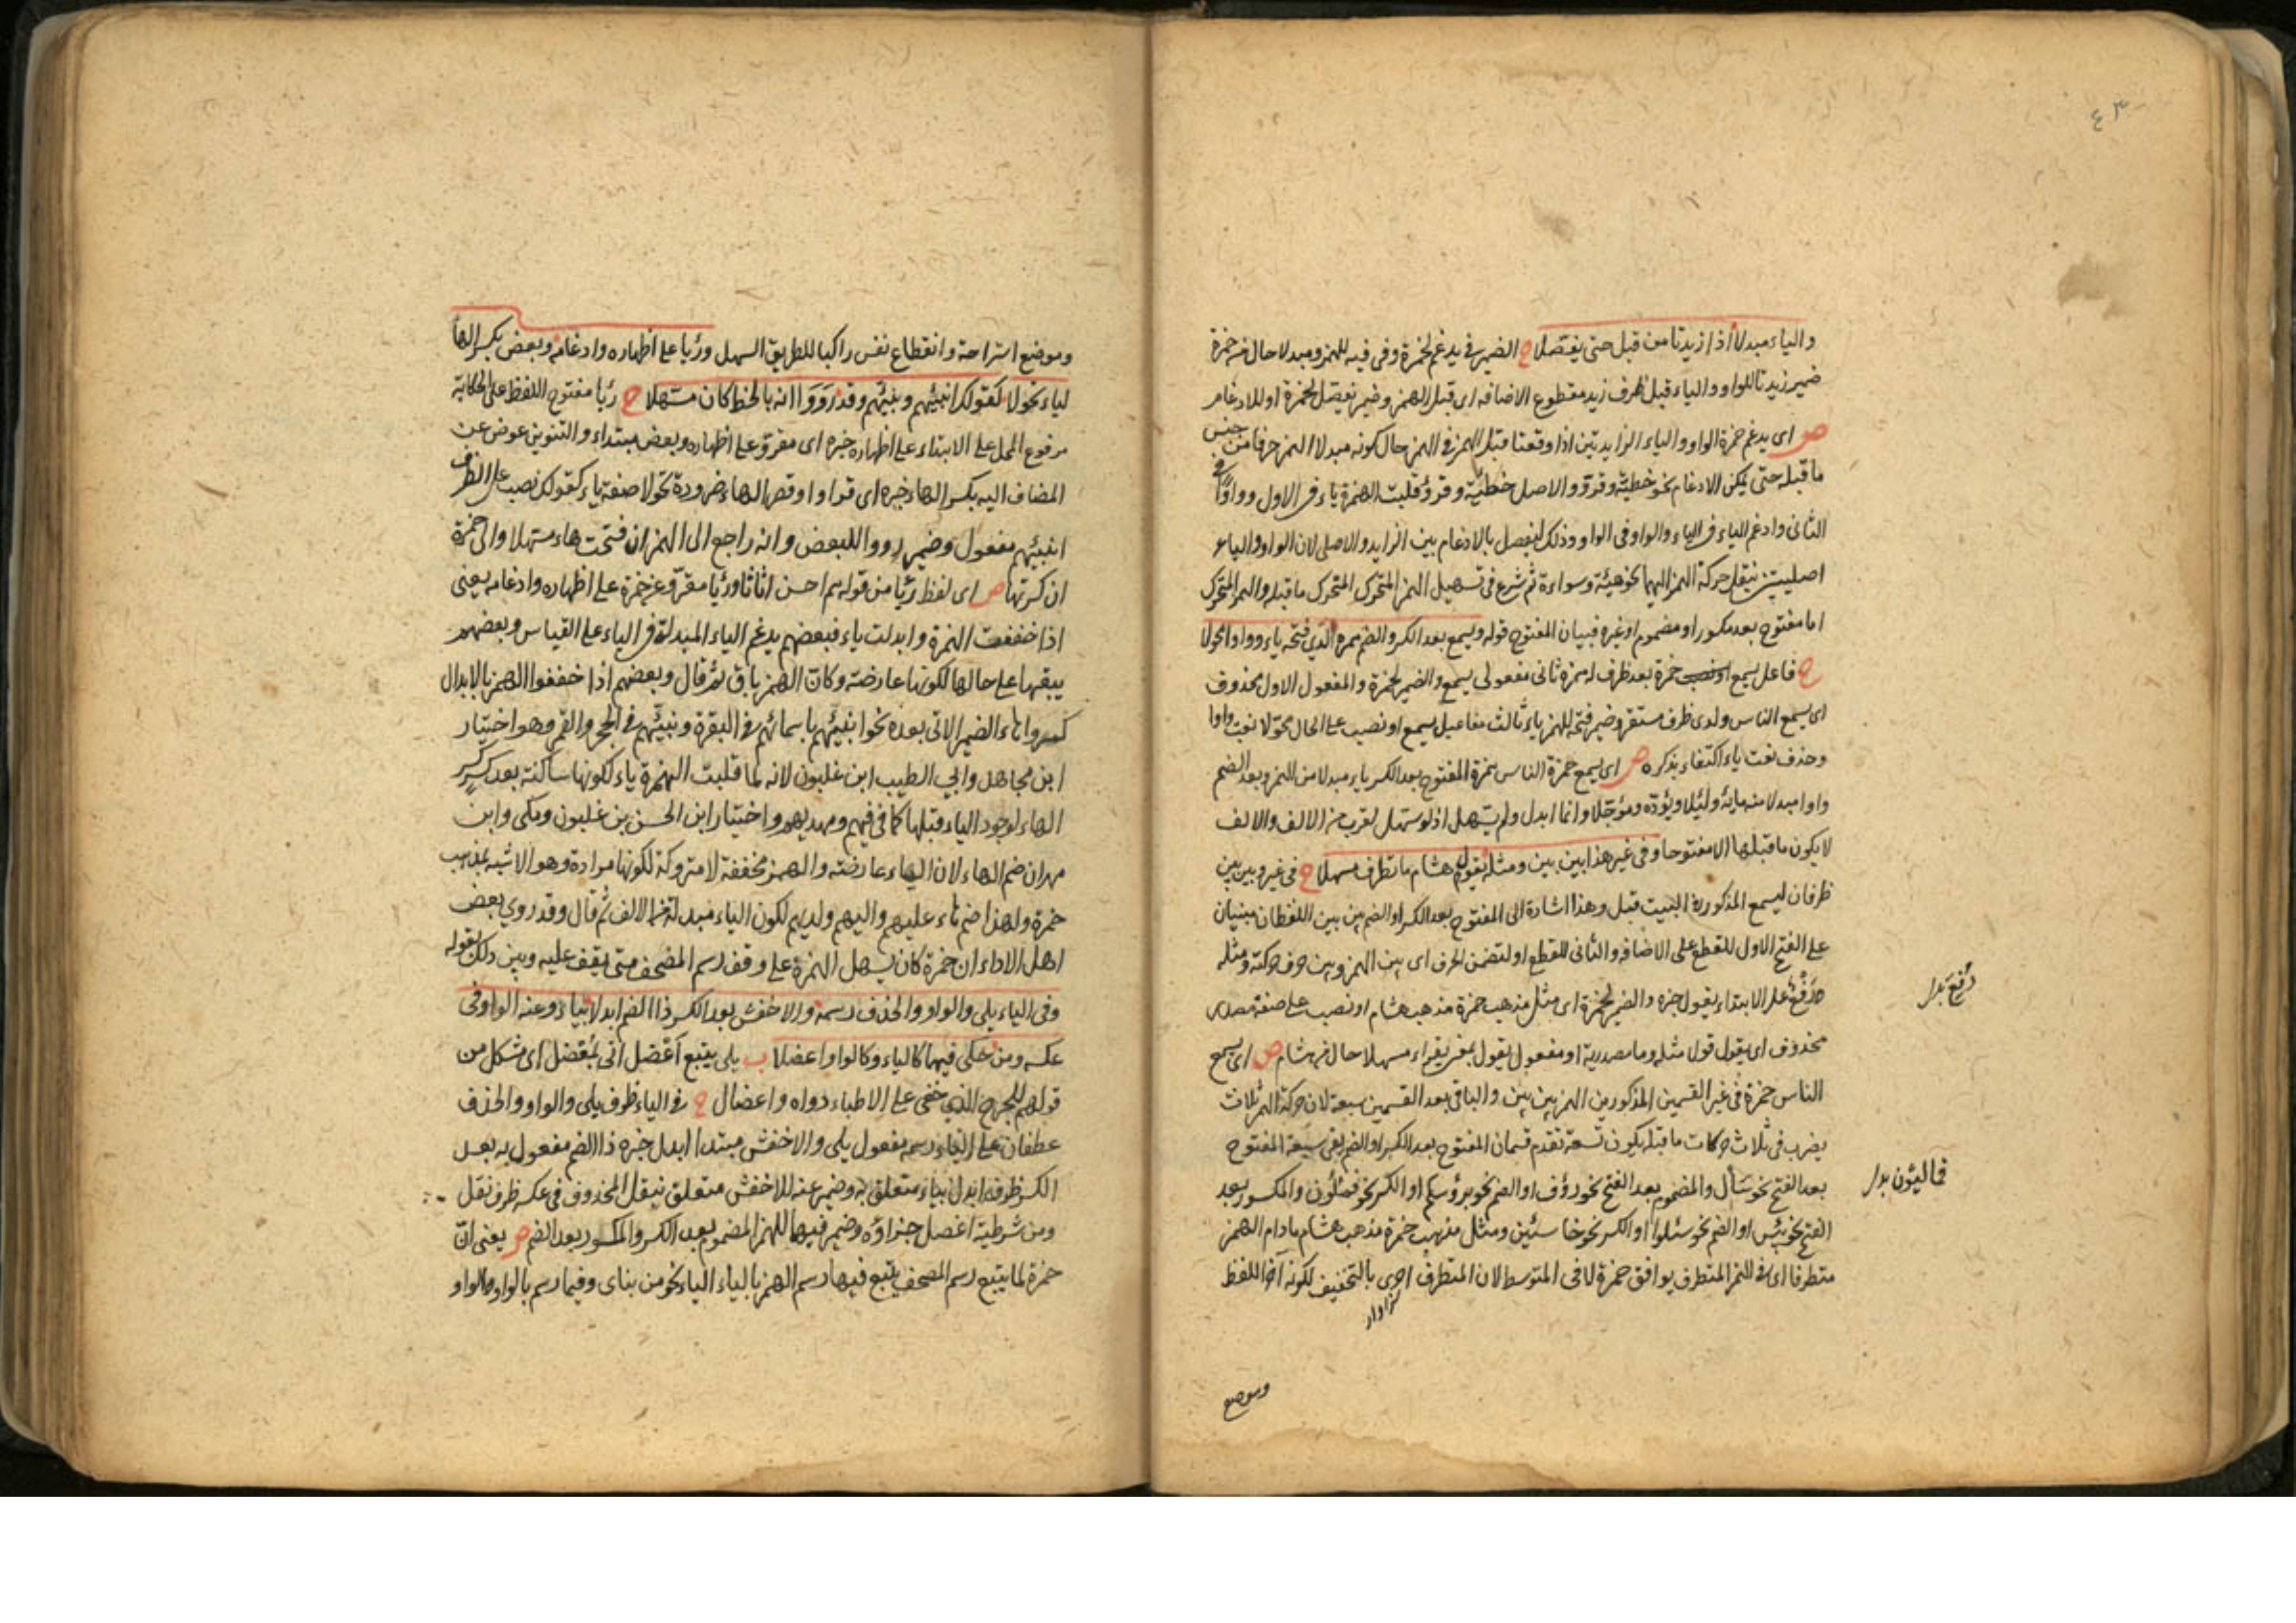 ٤٣
والياء مبدلا اذا زيدتا من قبل حتى يفصلا ح الضمير في يدغم لحمزة وفي فيه للهمز ومبدلا حال من حمزة
ضمير زيدتا للواو والياء قبل ظرف زيد مقطوع الاضافه اى قبل الهمز وضمير يفصل لحمزة او للادغام
ص اى يدغم حمزة الواو والياء الزايدتين اذا وقعتا قبل الهمز في الهمز حال كونه مبدلا الهمز حرفا من جنس
ما قبله حتى يمكن الادغام نحو خطيّة وقروّ والاصل خطيئة وقروء قلبت الهمزة ياء في الاول وواوا في
الثانى وادغم الياء في الياء والواو في الواو وذلك ليفصل بالادغام بين الزايد والاصلى لان الواو والياء
اصليتين ينقل حركة الهمز اليهما نحو هيئة وسواءة ثم شرع في تسهيل الهمز المتحرك المتحرك ما قبله والهمز المتحرك
اما مفتوح بعد مكسور او مضموم او غيره فبيان المفتوح قوله ويسمع بعد الكسر والضم همزه لدى فتحه ياء وواوا محولا
ح فاعل يسمع حمزة بعد ظرف له همزه ثانى مفعولى يسمع والضمير لحمزة والمفعول الاول محذوف
اى يسمع الناس ولدى ظرف مستقر وضمير فتحه للهمز ياء ثالث مفاعيل يسمع او نصب على الحال محولا نعت واوا
وحذف نعت ياء اكتفاء بذكره ص اى يسمع حمزة الناس همزة المفتوح بعد الكسر ياء مبدلا من الهمز وبعد الضم
واوا مبدلا منه مايئة ولئيلا ويؤدّه ومؤجّلا وانما ابدل ولم يسهل اذ لو سهل لقرب من الالف والالف
لا يكون ما قبلها الا مفتوحا وفي غير هذا بين بين ومثله يقول هشام ما تطرف مسهلا ح في غير وبين بين
ظرفان ليسمع المذكور في البيت قبل وهذا اشارة الى المفتوح بعد الكسر او الضم بين بين اللفظان مبنيان
على الفتح الاول للقطع على الاضافه والثانى للقطع او لتضمن الحرف اى بين الهمز وبين حرف حركته ومثله
رفع على الابتداء يقول خبره والضمير لحمزة اى مثل مذهب حمزة مذهب هشام او نصب على صفة مصدر
محذوف اى يقول قولا مثله وما مصدرية او مفعول يقول بمعنى يقراء مسهلا حال من هشام ص اى يسمع
الناس حمزة في غير القسمين المذكورين الهمز بين بين والباقى بعد القسمين سبعة لان حركة الهمز ثلاث
يضرب في ثلاث حركات ما قبله يكون تسعة تقدم قسمان المفتوح بعد الكسر او الضم بقى سبعة المفتوح
بعد الفتح نحو سَأل والمضموم بعد الفتح نحو رؤف او الضم نحو برؤسكم او الكسر نحو فمالؤن والمكسور بعد
الفتح نحو بئس او الضم نحو سئلوا او الكسر نحو خاسئين ومثل مذهب حمزة مذهب هشام مادام الهمز
متطرفا اى في الهمز المتطرف يوافق حمزة لا في المتوسط لان المتطرف احرى بالتخفيف لكونه آخر اللفظ
سزاوار
رفع بدل
فمالئون بدل
وموضع
وموضع استراحة وانقطاع نفس راكبا للطريق السهل ورئيا على اظهاره وادغامه وبعض بكسر الها
لياء تحولا كقولك انبئهم ونبئهم وقد رووا انه بالخط كان مسهلا ح رئيا مفتوح اللفظ على الحكاية
مرفوع المحل على الابتداء على اظهاره خبره اى مقروّ على اظهاره وبعض مبتداء والتنوين عوض عن
المضاف اليه بكسر الهاء خبره اى قراوا وقصر الهاء ضرورة تحولا صفة ياء كقولك نصب على الظرف
انبئهم مفعول وضمير رووا للبعض وانه راجع الى الهمز ان فتحت هاء مسهلا والى حمزة
ان كسرتها ص اى لفظ رئيا من قوله هم احسن اثاثا ورئيا مقروّ عن حمزة على اظهاره وادغامه يعنى
اذا خففت الهمزة وابدلت ياء فبعضهم يدغم الياء المبدلة في الياء على القياس وبعضهم
يبقيها على حالها لكونها عارضة وكان الهمز باق ثم قال وبعضهم اذا خففوا الهمز بالابدال
كسروا هاء الضمير الاتى بعده نحو انبئهم باسمائهم في البقرة ونبئهم في الحجر والقمر وهو اختيار
ابن مجاهد وابي الطيب ابن غلبون لانه لما قلبت الهمزة ياء لكونها ساكنة بعد كسر كسر
الهاء لوجود الياء قبلها كما في فيهم ويهديهم واختيار ابن الحسن بن غلبون ومكى وابن
مهران ضم الهاء لان الهاء عارضة والهمز مخففة لا متروكة لكونها مرادة وهو الاشبه بمذهب
حمزة ولهذا ضم هاء عليهم واليهم ولديهم لكون الياء مبدلة من الالف ثم قال وقد روى بعض
اهل الاداء ان حمزة كان يسهل الهمزة على وقف رسم المصحف متى يقف عليه وبين ذلك بقوله
وفي الياء يلى والواو والحذف رسمه والاخفش بعد الكسر ذا الضم ابدلا بياء وعنه الواو في
عكسه ومن حكى فيهما كالياء وكالواو اعضلا ب يلى يتبع اعضل اتى بمعضل اى مشكل من
قولهم للجرح الذى خفى على الاطباء دواه واعضال ح في الياء ظرف يلى والواو والحذف
عطفان على الياء رسمه مفعول يلى والاخفش مبتدا ابدل خبره ذا الضم مفعول به بعد
الكسر ظرفه ابدل بياء متعلق به وضمير عنه للاخفش متعلق بنقل المحذوف في عكسه ظرف نقل
ومن شرطية اعضل جزاؤه وضمير فيهما للهمز المضموم بعد الكسر والمكسور بعد الضم ص يعنى انّ
حمزة لما يتبع رسم المصحف يتبع فيها رسم الهمز بالياء الياء نحو من بناى وفيما رسم بالواو الواو